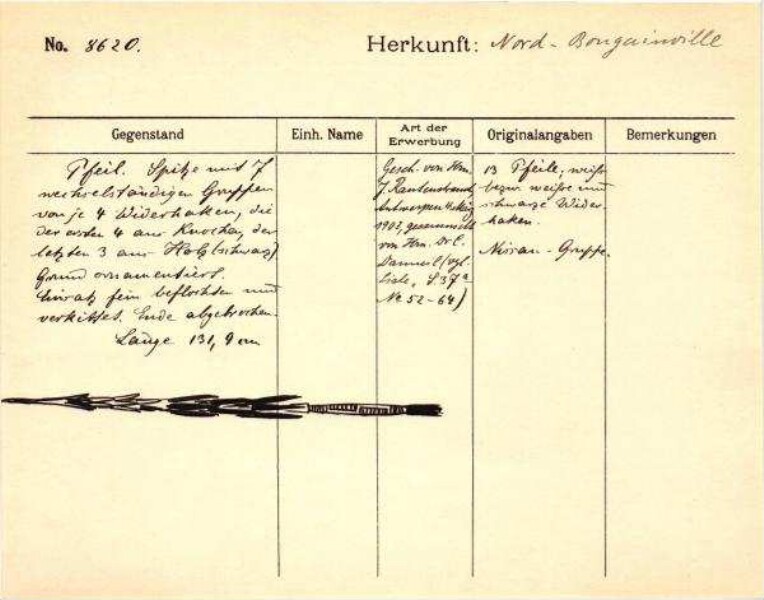 No. 8620.
Herkunft: Nord-Bougainville
Gegenstand
Einh. Name
Art der Erwerbung
Originalangaben
Bemerkungen
Pfeil. Spitze mit 7
wechselständigen Gruppen
von je 4 Widerhaken, die
der ersten 4 aus Knochen, der
letzten 3 aus Holz (schwarz)
Grund ornamentiert.
Einsatz fein beflochten und
verkittet. Ende abgebrochen.
Länge 131,9 cm
Gesch. von Hrn.
J. Rautenstrauch,
Antwerpen
1903, gesammelt
von Hrn. Dr. E.
(vgl.
Liste, S. 37a
No 52-64)
13 Pfeile, weiße
bezw. weiße und
schwarze Wider-
haken.
Nissan-Gruppe.